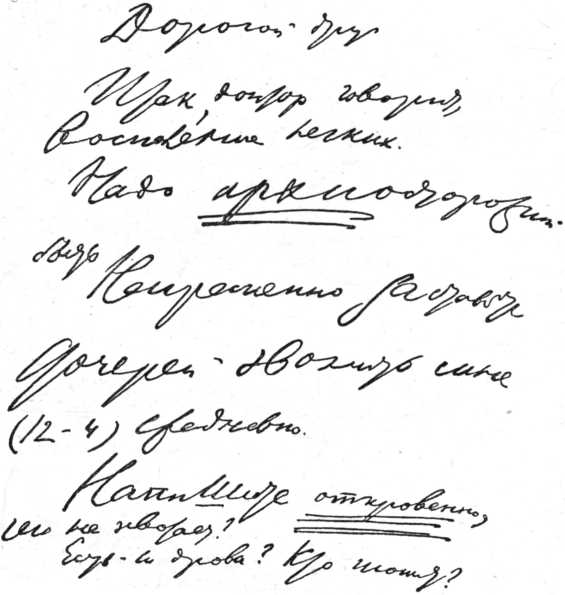 Дорогой друг
Итак, доктор говорит,
Воспаление легких.
Надо архиосторожной
быть Непременно заставьте
дочерей звонить мне
(12-4) ежедневно.
Напишите откровенно,
чего не хватает?
Есть-ли дрова? Кто топит?